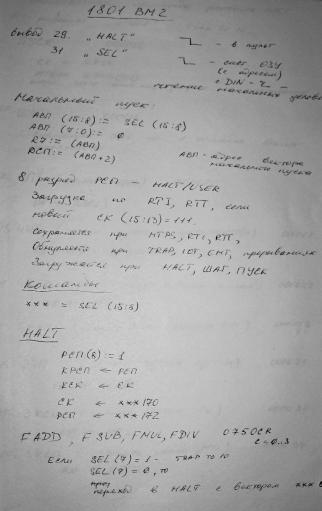 1801 ВМ2
вывод 29. „HALT" - в пульт
31 „SEL" - сист. ОЗУ
(с адресом)
с DIN -
чтение начальных условий
Начальный пуск:
АВП (15:8):= SEL (15:8)
АВП (7:0):= 0
R7:= (АВП)
РСП:= (АВП+2)
АВП - адрес вектора
начального пуска
8 разряд РСП - HALT/USER
Загрузка по RTI, RTT, если
новый СК (15:13)=111,
Сохраняется при MTPS, RTI, RTT,
Обнуляется при TRAP, IOT, EMT, прерываниях
Загружается при HALT, ШАГ, ПУСК
Команды
xxx = SEL (15:8)
HALT
РСП(8):=1
КРСП ← РСП
КСК ← СК
СК ← xxx170
РСП ← xxx172
FADD, FSUB, FMUL, FDIV 0750CR
C=0..3
Если SEL(7)=1 - TRAP TO 10
SEL(7)=0, то
переход в HALT с вектором xxx